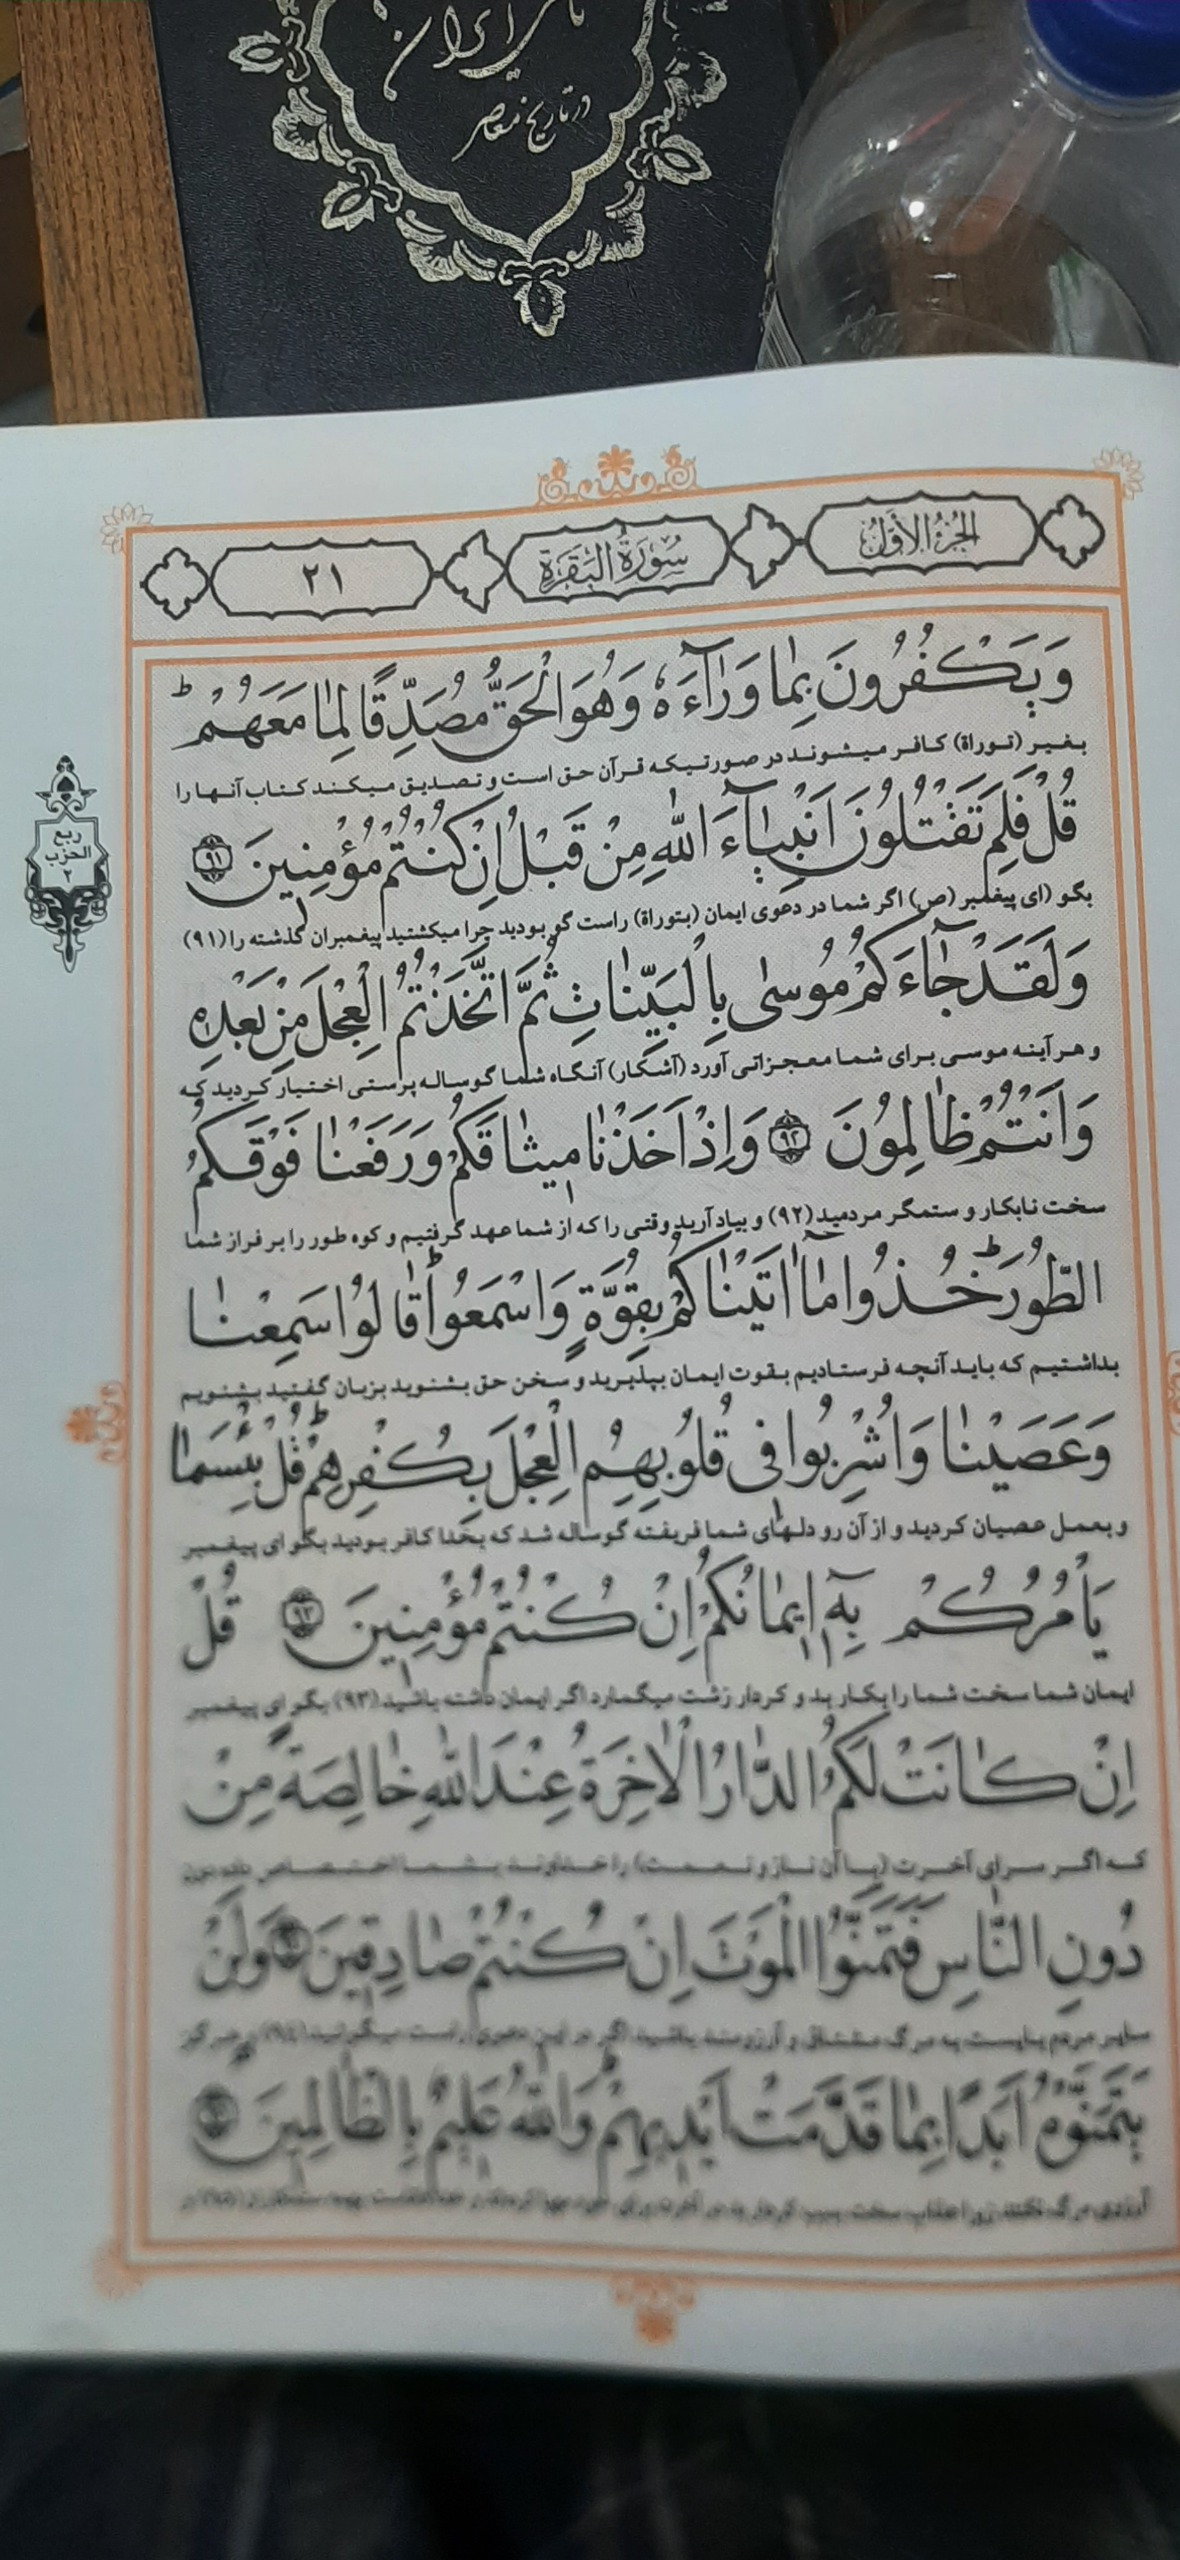 ایران
در تاریخ معاصر
الجزء الأول
سورة البقرة
٢١
ربع
الحزب
٢
وَيَكْفُرُونَ بِمٰا وَرٰآءَهُ وَهُوَ الْحَقُّ مُصَدِّقًا لِمٰا مَعَهُمْ ط
بغیر (توراة) کافر میشوند در صورتیکه قرآن حق است و تصدیق میکند کتاب آنها را
قُلْ فَلِمَ تَقْتُلُونَ اَنْبِيٰآءَ اللّٰهِ مِنْ قَبْلُ اِنْ كُنْتُمْ مُؤْمِنِينَ ٩١
بگو (ای پیغمبر (ص) اگر شما در دعوی ایمان (بتوراة) راست گو بودید چرا میکشتید پیغمبران گذشته را (٩١)
وَلَقَدْ جٰآءَكُمْ مُوسٰى بِالْبَيِّنٰاتِ ثُمَّ اتَّخَذْتُمُ الْعِجْلَ مِنْ بَعْدِهِ
و هر آینه موسی برای شما معجزاتی آورد (آشکار) آنگاه شما گوساله پرستی اختیار کردید که
وَاَنْتُمْ ظٰالِمُونَ ٩٢ وَاِذْ اَخَذْنٰا مِيثٰاقَكُمْ وَرَفَعْنٰا فَوْقَكُمُ
سخت نابکار و ستمگر مردمید (٩٢) و بیاد آرید وقتی را که از شما عهد گرفتیم و کوه طور را بر فراز شما
الطُّورَ ط خُذُوا مٰآ اٰتَيْنٰاكُمْ بِقُوَّةٍ وَاسْمَعُوا ط قٰالُوا سَمِعْنٰا
بداشتیم که باید آنچه فرستادیم بقوت ایمان بپذیرید و سخن حق بشنوید بزبان گفتید بشنویم
وَعَصَيْنٰا وَاُشْرِبُوا فِى قُلُوبِهِمُ الْعِجْلَ بِكُفْرِهِمْ ط قُلْ بِئْسَمٰا
و بعمل عصیان کردید و از آن رو دلهای شما فریفته گوساله شد که بخدا کافر بودید بگو ای پیغمبر
يَأْمُرُكُمْ بِهِٓ اِيمٰانُكُمْ اِنْ كُنْتُمْ مُؤْمِنِينَ ٩٣ قُلْ
ایمان شما سخت شما را بکار بد و کردار زشت میگمارد اگر ایمان داشته باشید (٩٣) بگو ای پیغمبر
اِنْ كٰانَتْ لَكُمُ الدّٰارُ الْاٰخِرَةُ عِنْدَ اللّٰهِ خٰالِصَةً مِنْ
که اگر سرای آخرت (با آن ناز و نعمت) را خداوند بشما اختصاص داده دون
دُونِ النّٰاسِ فَتَمَنَّوُا الْمَوْتَ اِنْ كُنْتُمْ صٰادِقِينَ ٩٤ وَلَنْ
سایر مردم بایست به مرگ مشتاق و آرزومند باشید اگر در این دعوی راست میگوئید (٩٤) و هرگز
يَتَمَنَّوْهُ اَبَدًا بِمٰا قَدَّمَتْ اَيْدِيهِمْ ط وَاللّٰهُ عَلِيمٌ بِالظّٰالِمِينَ
آرزوی مرگ نکنند زیرا عذاب سخت بسبب کردار بد در آخرت برای خود مهیا کرده‌اند